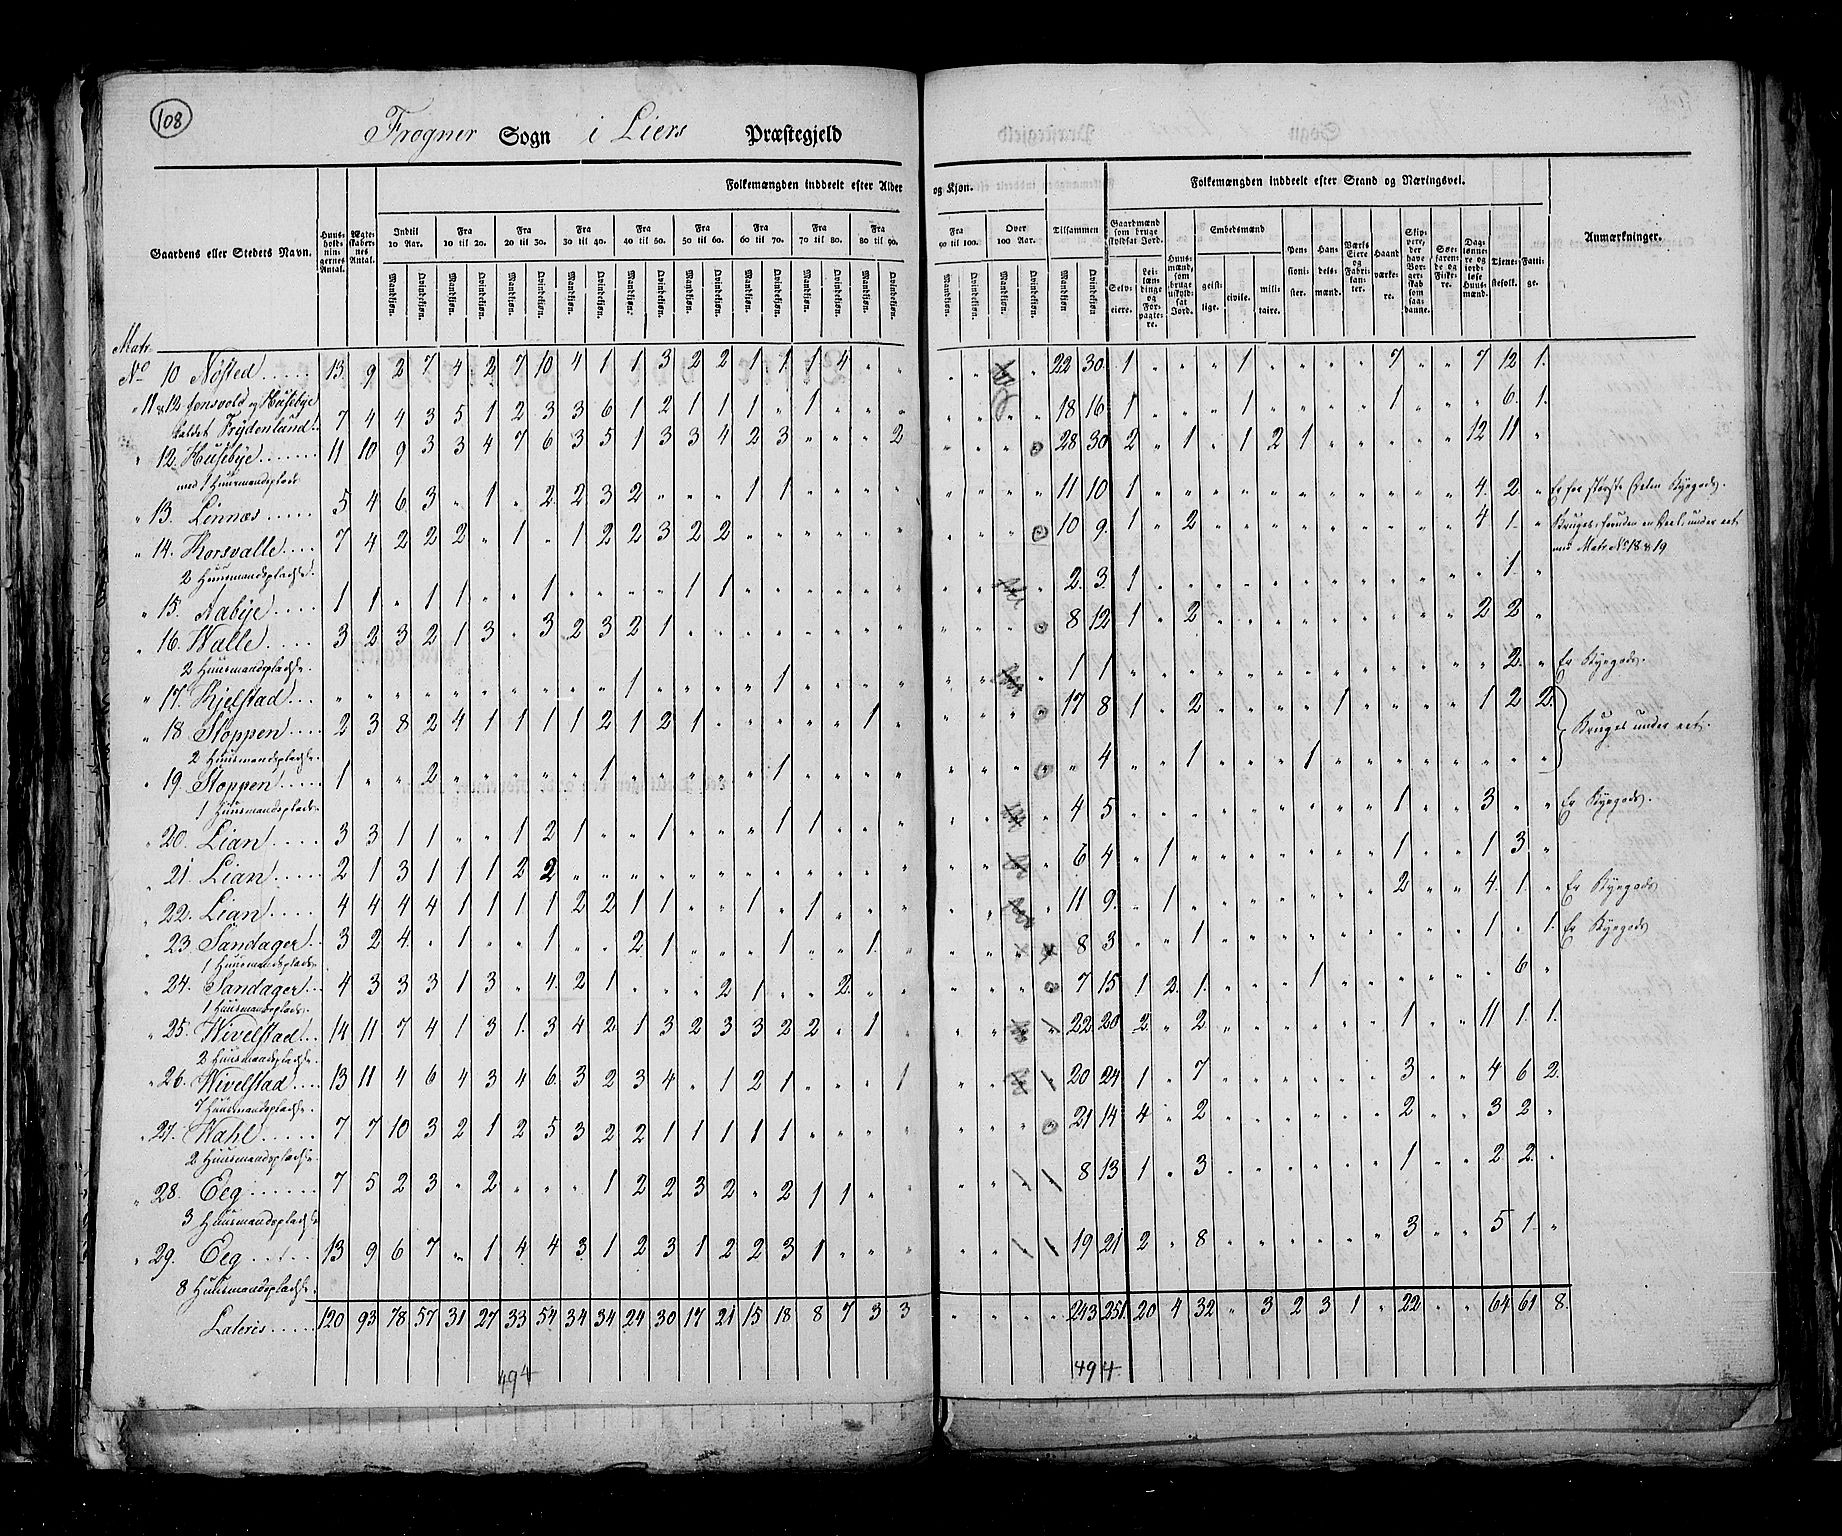 108
Frogner Sogn i Liers Præstegjeld
Folkemængden inddeelt efter Alder og Kjøn.
Folkemængden inddeelt efter Stand og Næringsvei.
Gaardens eller Stedets Navn.
Huusholdningernes Antal.
Ægteskabernes Antal.
Indtil 10 Aar.
Fra 10 til 20.
Fra 20 til 30.
Fra 30 til 40.
Fra 40 til 50.
Fra 50 til 60.
Fra 60 til 70.
Fra 70 til 80.
Fra 80 til 90.
Fra 90 til 100.
Over 100 Aar.
Tilsammen
Mandkjøn. Qvindekjøn.
Gaardmænd som bruge skyldsat Jord.
Selveiere.
Leilændinge og Forpagtere.
Huusmænd, som bruge uskyldsat Jord.
Embedsmænd
geistlige.
civile.
militaire.
Pensionister.
Handelsmænd.
Værks Eiere og Fabrikanter.
Haandværkere.
Skippere, der have Borgerskab som saadanne.
Søefarende og Fiskere.
Dagleiere og jordløse Huusmænd.
Tjenestefolk.
Fattige.
Anmærkninger.
Matr.
No 10 Nøsted 13 9 2 7 4 2 7 10 4 1 1 3 2 2 1 1 1 4 22 30 1 1 7 7 12 1.
" 11 & 12 Jonsvold og Husebye
kaldet Frydenlund 7 4 4 3 5 1 2 3 3 6 1 2 1 1 1 " 1 18 16 1 1 1 6. 1.
" 12. Husebye 11 10 9 3 3 4 7 6 3 5 1 3 3 4 2 3 2 28 30 2 " 1 " 1 2 1 12 11 "
med 1 Huusmandsplads
" 13. Linnæs 5 4 6 3 " 1 " 2 2 3 2 " " " 1 1 11 10 1 4. 2. " Er for største Delen Kyegods.
" 14. Korsvalle 7 4 2 2 2 " 1 " 1 2 2 3 2 2 10 9. 1 " 2 4 1. " Bruges, foruden en Deel, under eet
med Matr. No 18 & 19
2 Huusmandspladse.
" 15. Aabye 1 1 " 1 1 " " 1 " " " " 1 1 2. 3. 1 1. "
" 16. Walle 3 2 3 2 1 3 " 3 2 3 2 1 8 12 1 " 2 2 2 "
2 Huusmandspladse.
" 17. Kjelstad " " " " " " " " " " 1 " " " " 1 1 1 2. " Er Kyegods.
" 18 Stoppen 2 3 8 2 4 1 1 1 1 2 1 2 1 " " " " " 1 " 17 8 1 " 2 1 1 2 2. Bruges under eet.
2 Huusmandspladse.
" 19. Stoppen 1 " " 2 " " " " " 1 " " " " " 1 " 4 " " 1 1
1 Huusmandsplads.
" 20. Lian 3 3 1 1 " " 1 2 1 " " 1 " " " 1 1 4 5 1 3 " " Er Kyegods.
" 21. Lian 2 1 3 1 1 1 2 2 6 4 " 1 1 1 3. "
" 22. Lian 4 4 4 4 1 1 1 1 2 2 1 1 " " 1 " 1 11 9. " 1 2 4. 1. " Er Kyegods
" 23. Sandager 3 2 4. " 1 " " 1 " " 2 1 " " " 1 " " 1. 8 3 " " 1 1 " 1. Er Kyegods
1 Huusmandsplads.
" 24. Sandager 4 3 3 3 1 3 " 4. 2 1 " " " 2 1 " " 2. 7 15 1 2. 1. 1 6 "
1 Huusmandsplads.
" 25. Wivelstad 14 11 7 4 1 3 1. 3 4 2 1 3 2 3 3 2 2 " 1 22 20 2 " 2 1 11 1 1.
2 Huusmandspladse.
" 26. Wivelstad 13 11 4 6 4 3 4 6 3 2 3 4 " 1 2 1 1 20 24 1 " 7 3 4 6 2.
7 Huusmandspladse.
" 27. Hahl 7 7 10 3 2 1 2 5 3 2 2 1 1 1 1 1 21 14 4 " 2 2 3 2 "
2 Huusmandspladse.
" 28. Eeg 7 5 2 3 " 2 " " " 1 2 2 3 2 " 2 1 1 8 13 1 " 3 1 2 2. "
3 Huusmandspladse
" 29. Eeg 13 9 6 7 " 1 4 4 3 1 2 3 1 2 2 3 1 19 21 2 " 8 3 5 1. "
8 Huusmandspladse.
Lateris 120 93 78 57 31 27 33 54 34 34 24 30 17 21 15 18 8 7 3 3 " " " " 243 251 20 4 32 " 3 2 3 1 " 22 " " 64 61 8.
494 494